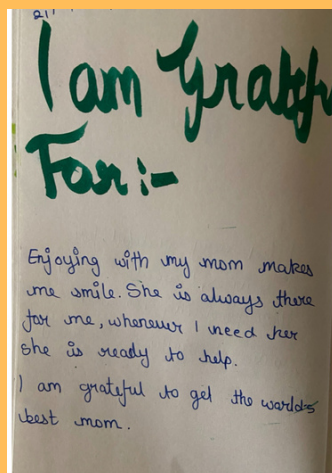 21
I am Gratef
For:-
Enjoying with my mom makes
me smile. She is always there
for me, whenever I need her
she is ready to help.
I am grateful to get the worlds
best mom.